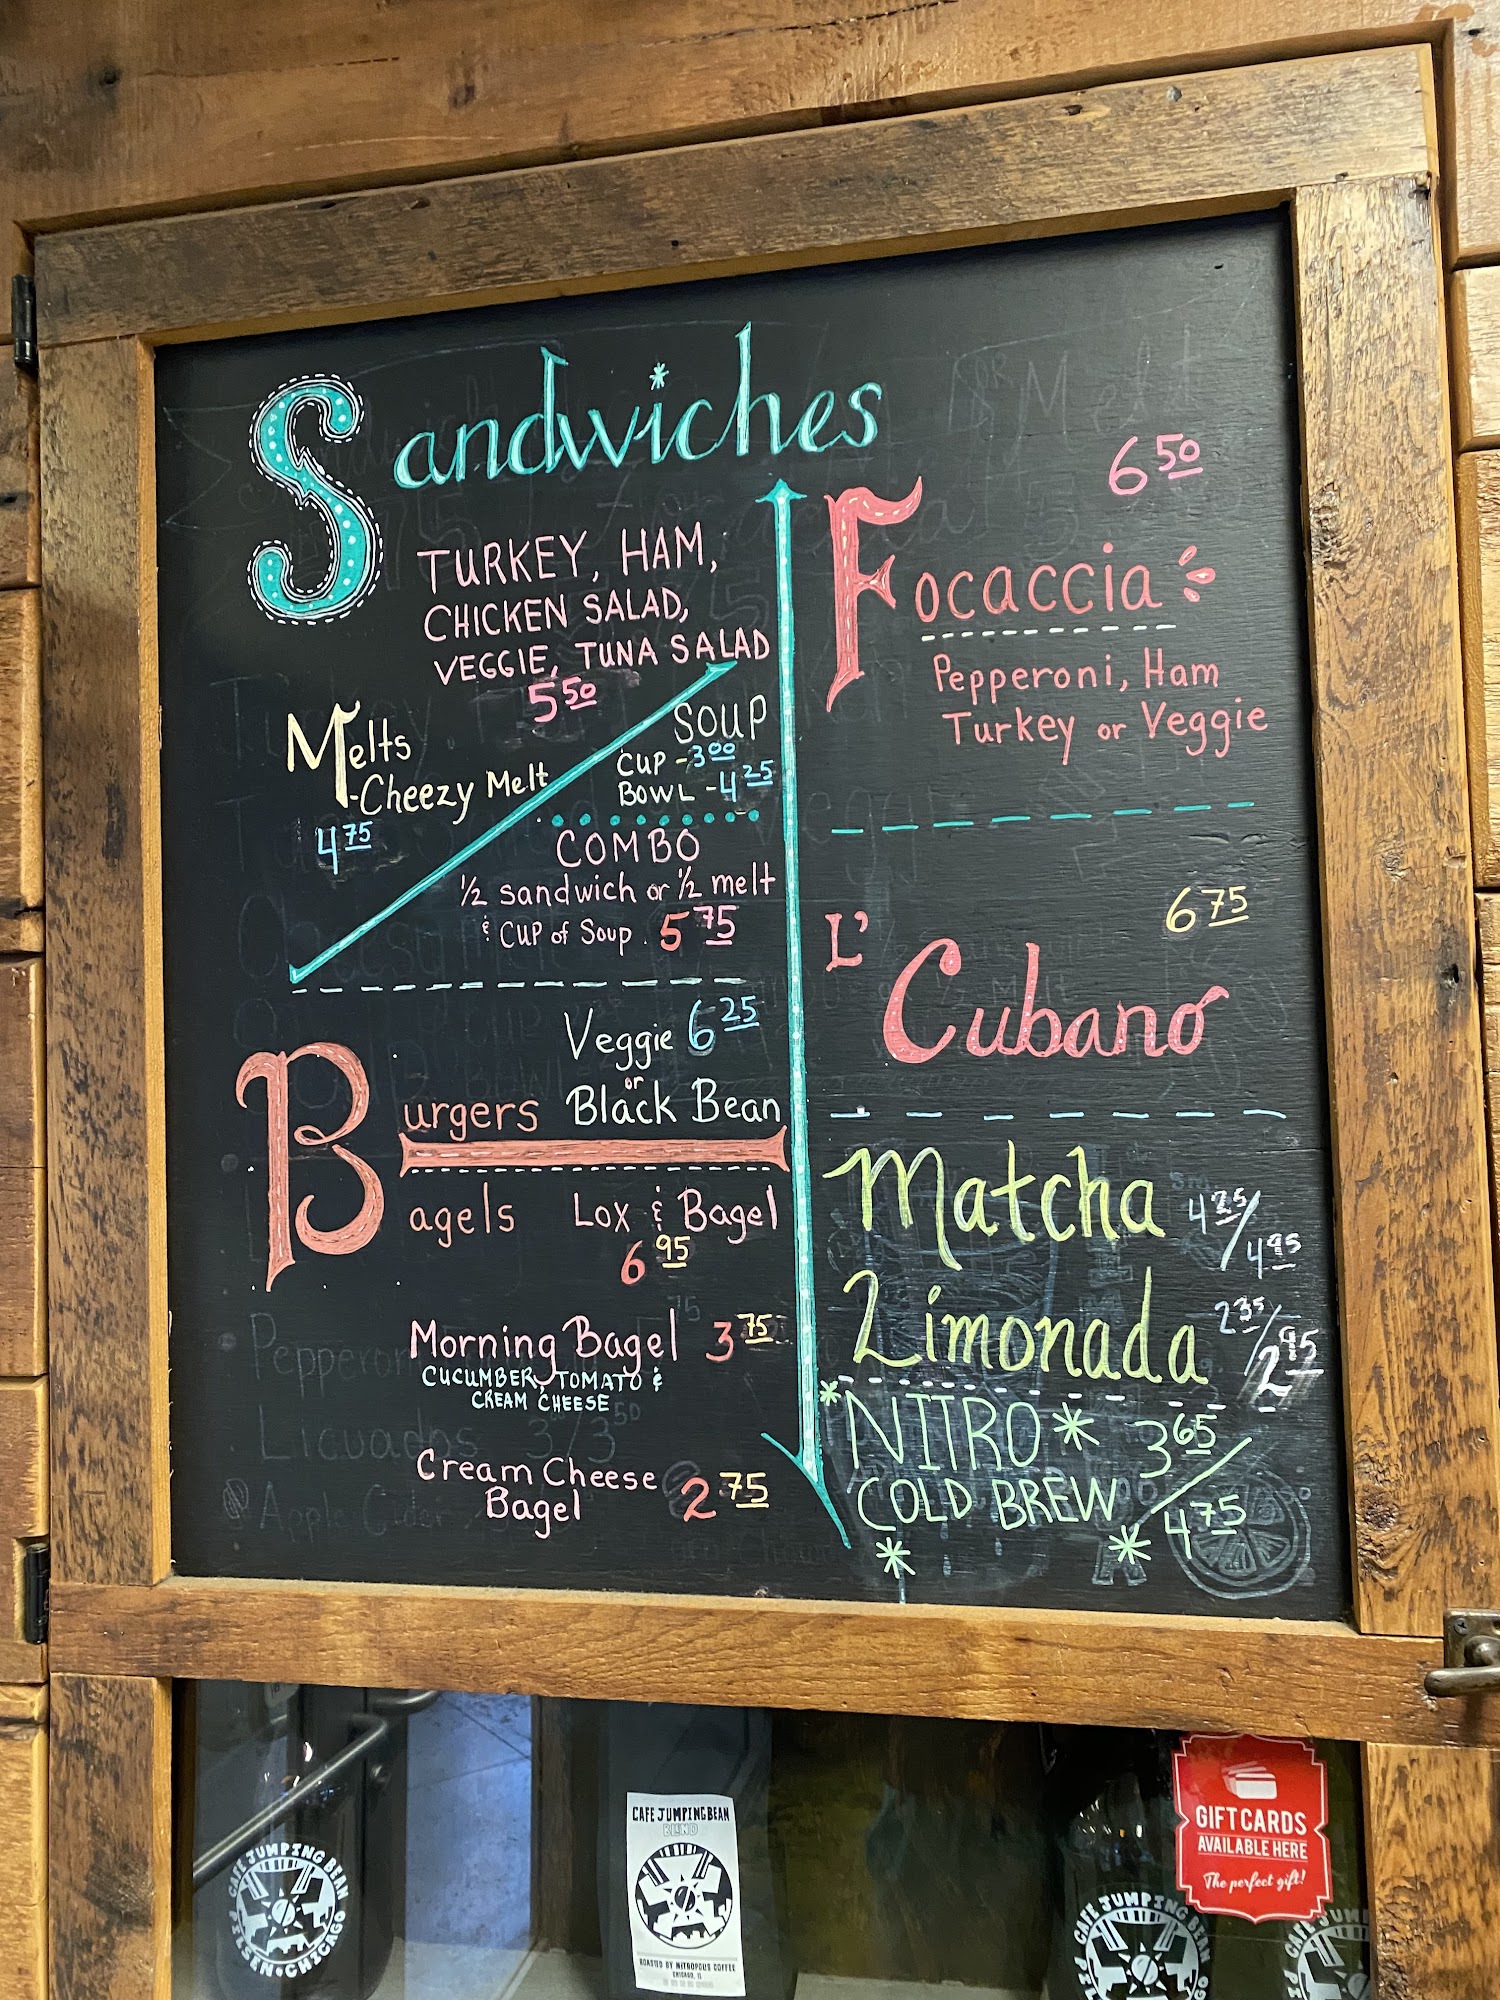 Sandwiches
TURKEY, HAM,
CHICKEN SALAD,
VEGGIE, TUNA SALAD
5 50
Melts
-Cheezy Melt
4 75
SOUP
CUP - 3 00
BOWL - 4 25
COMBO
1/2 sandwich or 1/2 melt
& CUP of Soup . 5 75
Burgers
Veggie 6 25
or
Black Bean
Bagels
Lox & Bagel
6 95
Morning Bagel 3 75
CUCUMBER, TOMATO &
CREAM CHEESE
Cream Cheese
Bagel
2 75
6 50
Focaccia
Pepperoni, Ham
Turkey or Veggie
6 75
L'
Cubano
Matcha 4 25/4 95
Limonada 2 35/2 95
*NITRO*
COLD BREW
3 65/4 75
CAFE JUMPING BEAN
PILSEN • CHICAGO
CAFE JUMPING BEAN
BLEND
ROASTED BY METROPOLIS COFFEE
CHICAGO, IL
GIFT CARDS
AVAILABLE HERE
The perfect gift!
CAFE JUMPING BEAN